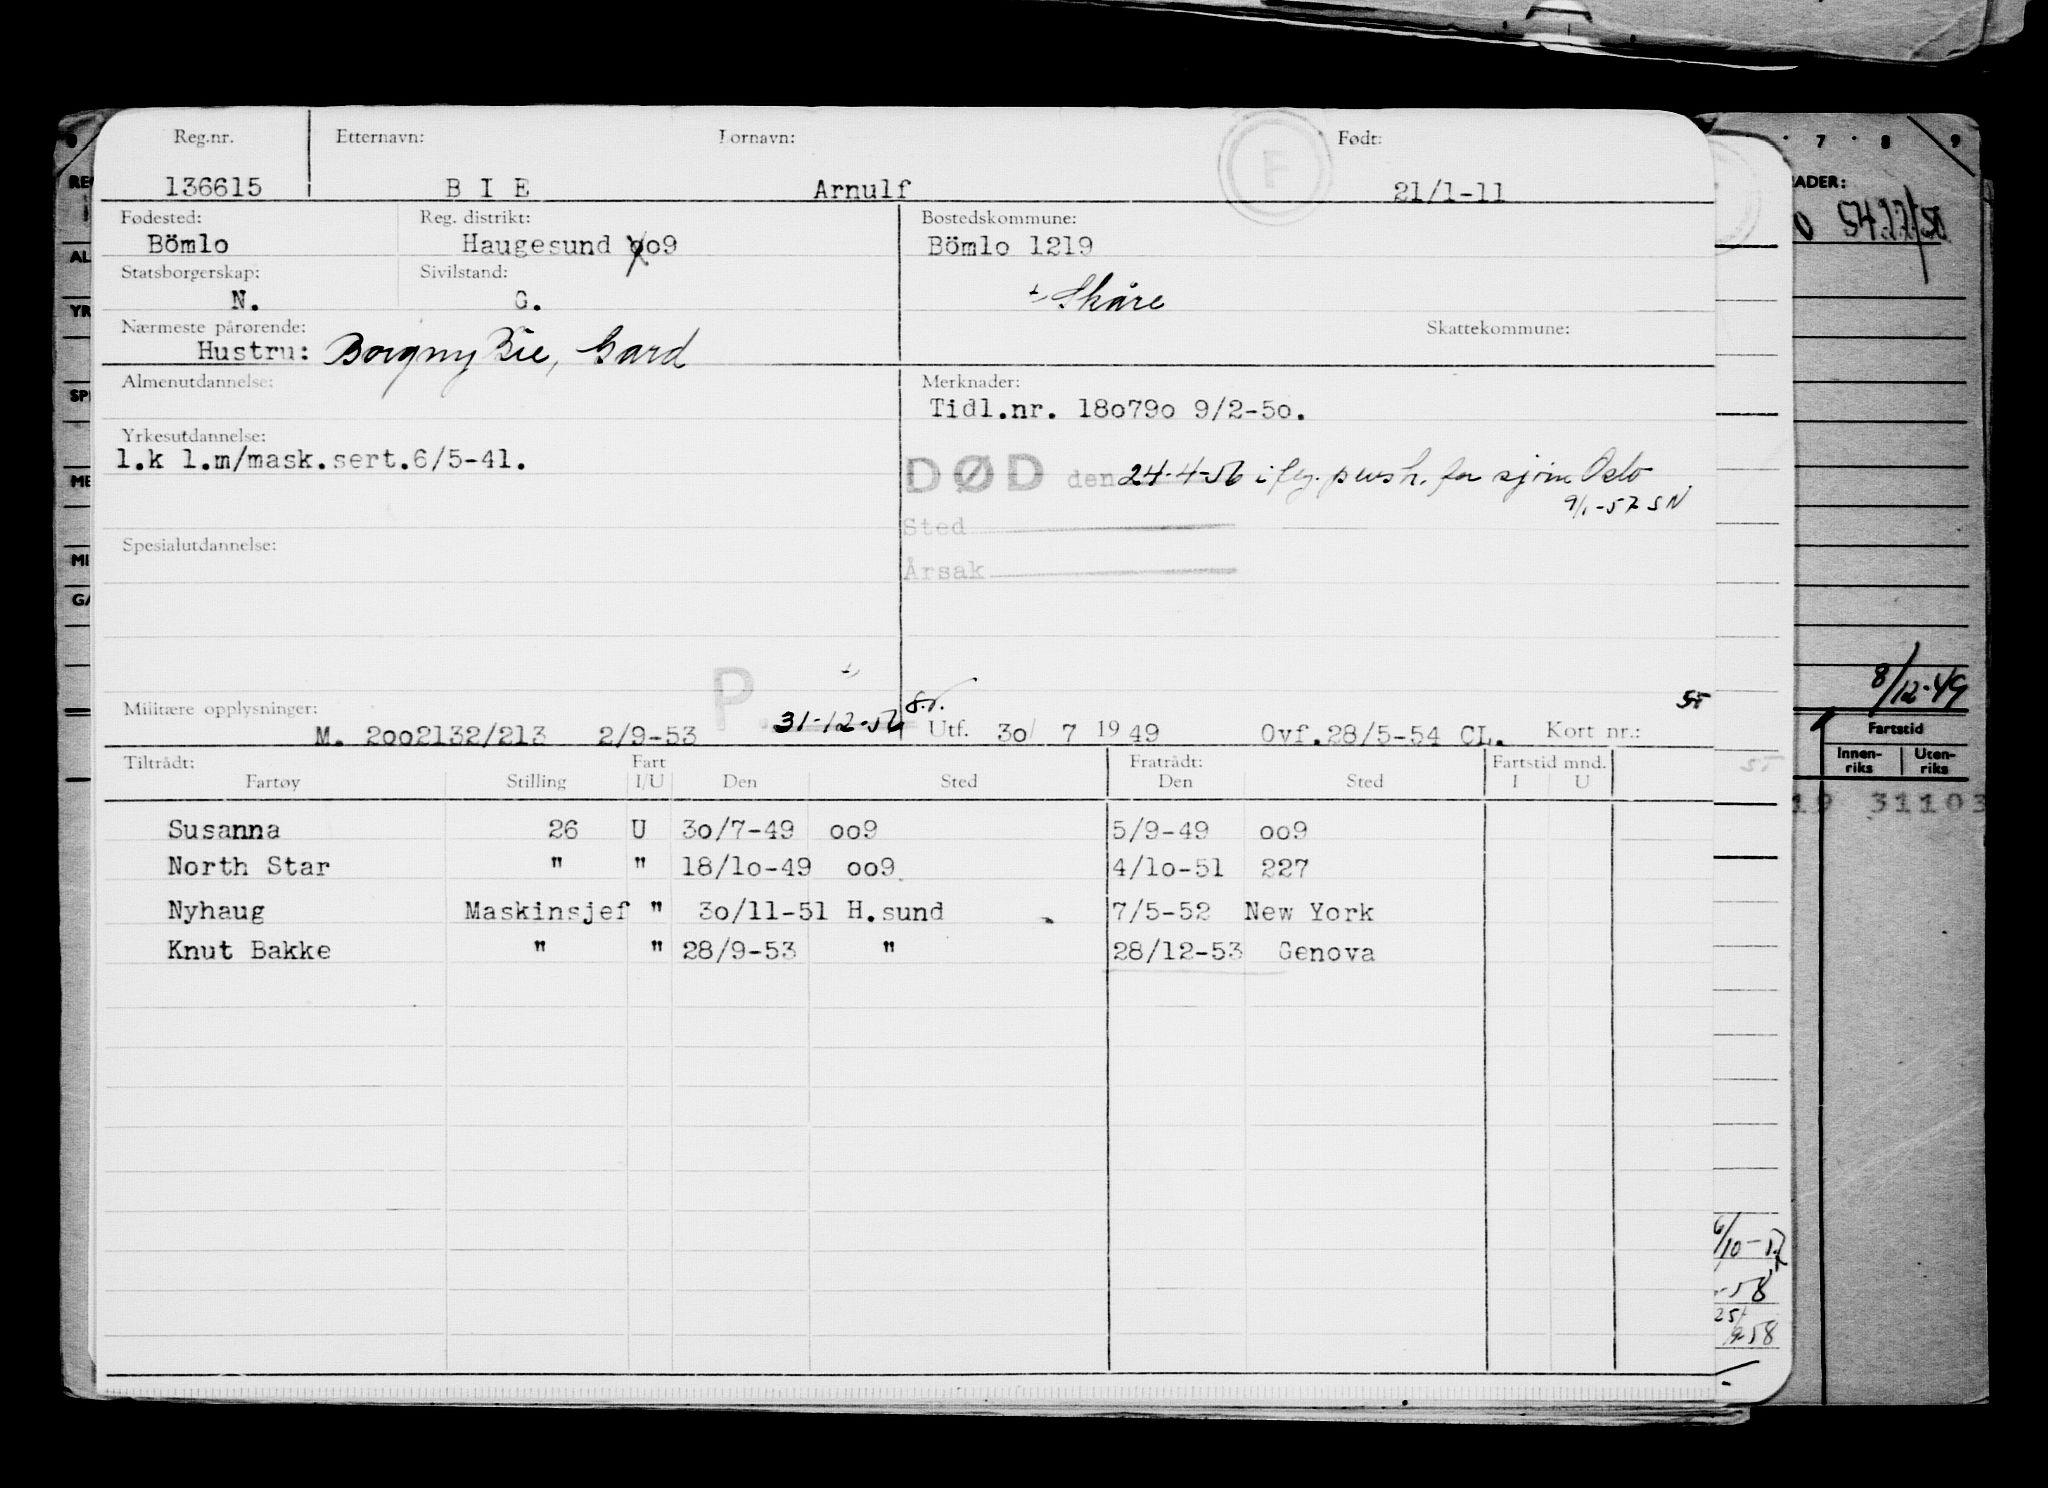 Reg.nr. Etternavn: Fornavn: Født:
136615 B I E Arnulf 21/1-11
Fødested: Reg. distrikt: Bostedskommune:
Bömlo Haugesund oo9 Bömlo 1219
Statsborgerskap: Sivilstand:
N. G. Skåre
Nærmeste pårørende: Skattekommune:
Hustru: Borgny Bie, Gard
Almenutdannelse: Merknader:
Tidl.nr. 18o79o 9/2-5o.
Yrkesutdannelse:
1.k l.m/mask.sert.6/5-41.
DØD den 24-4-56 i flg. pensh. for sjöm Oslo
9/1-57 SN
Sted
Spesialutdannelse:
Årsak
P. 31-12-56
Militære opplysninger:
M. 2oo2132/213 2/9-53 Utf. 3o/ 7 1949 Ovf.28/5-54 CL. Kort nr.:
Tiltrådt: Fart Fratrådt: Fartstid mnd.
Fartøy Stilling I/U Den Sted Den Sted I U
Susanna 26 U 3o/7-49 oo9 5/9-49 oo9
North Star " " 18/1o-49 oo9 4/1o-51 227
Nyhaug Maskinsjef " 3o/11-51 H.sund 7/5-52 New York
Knut Bakke " " 28/9-53 " 28/12-53 Genova
7 8 9
ADER:
8/12-49
Fartstid
Innen-riks Uten-riks
19 31103
-58